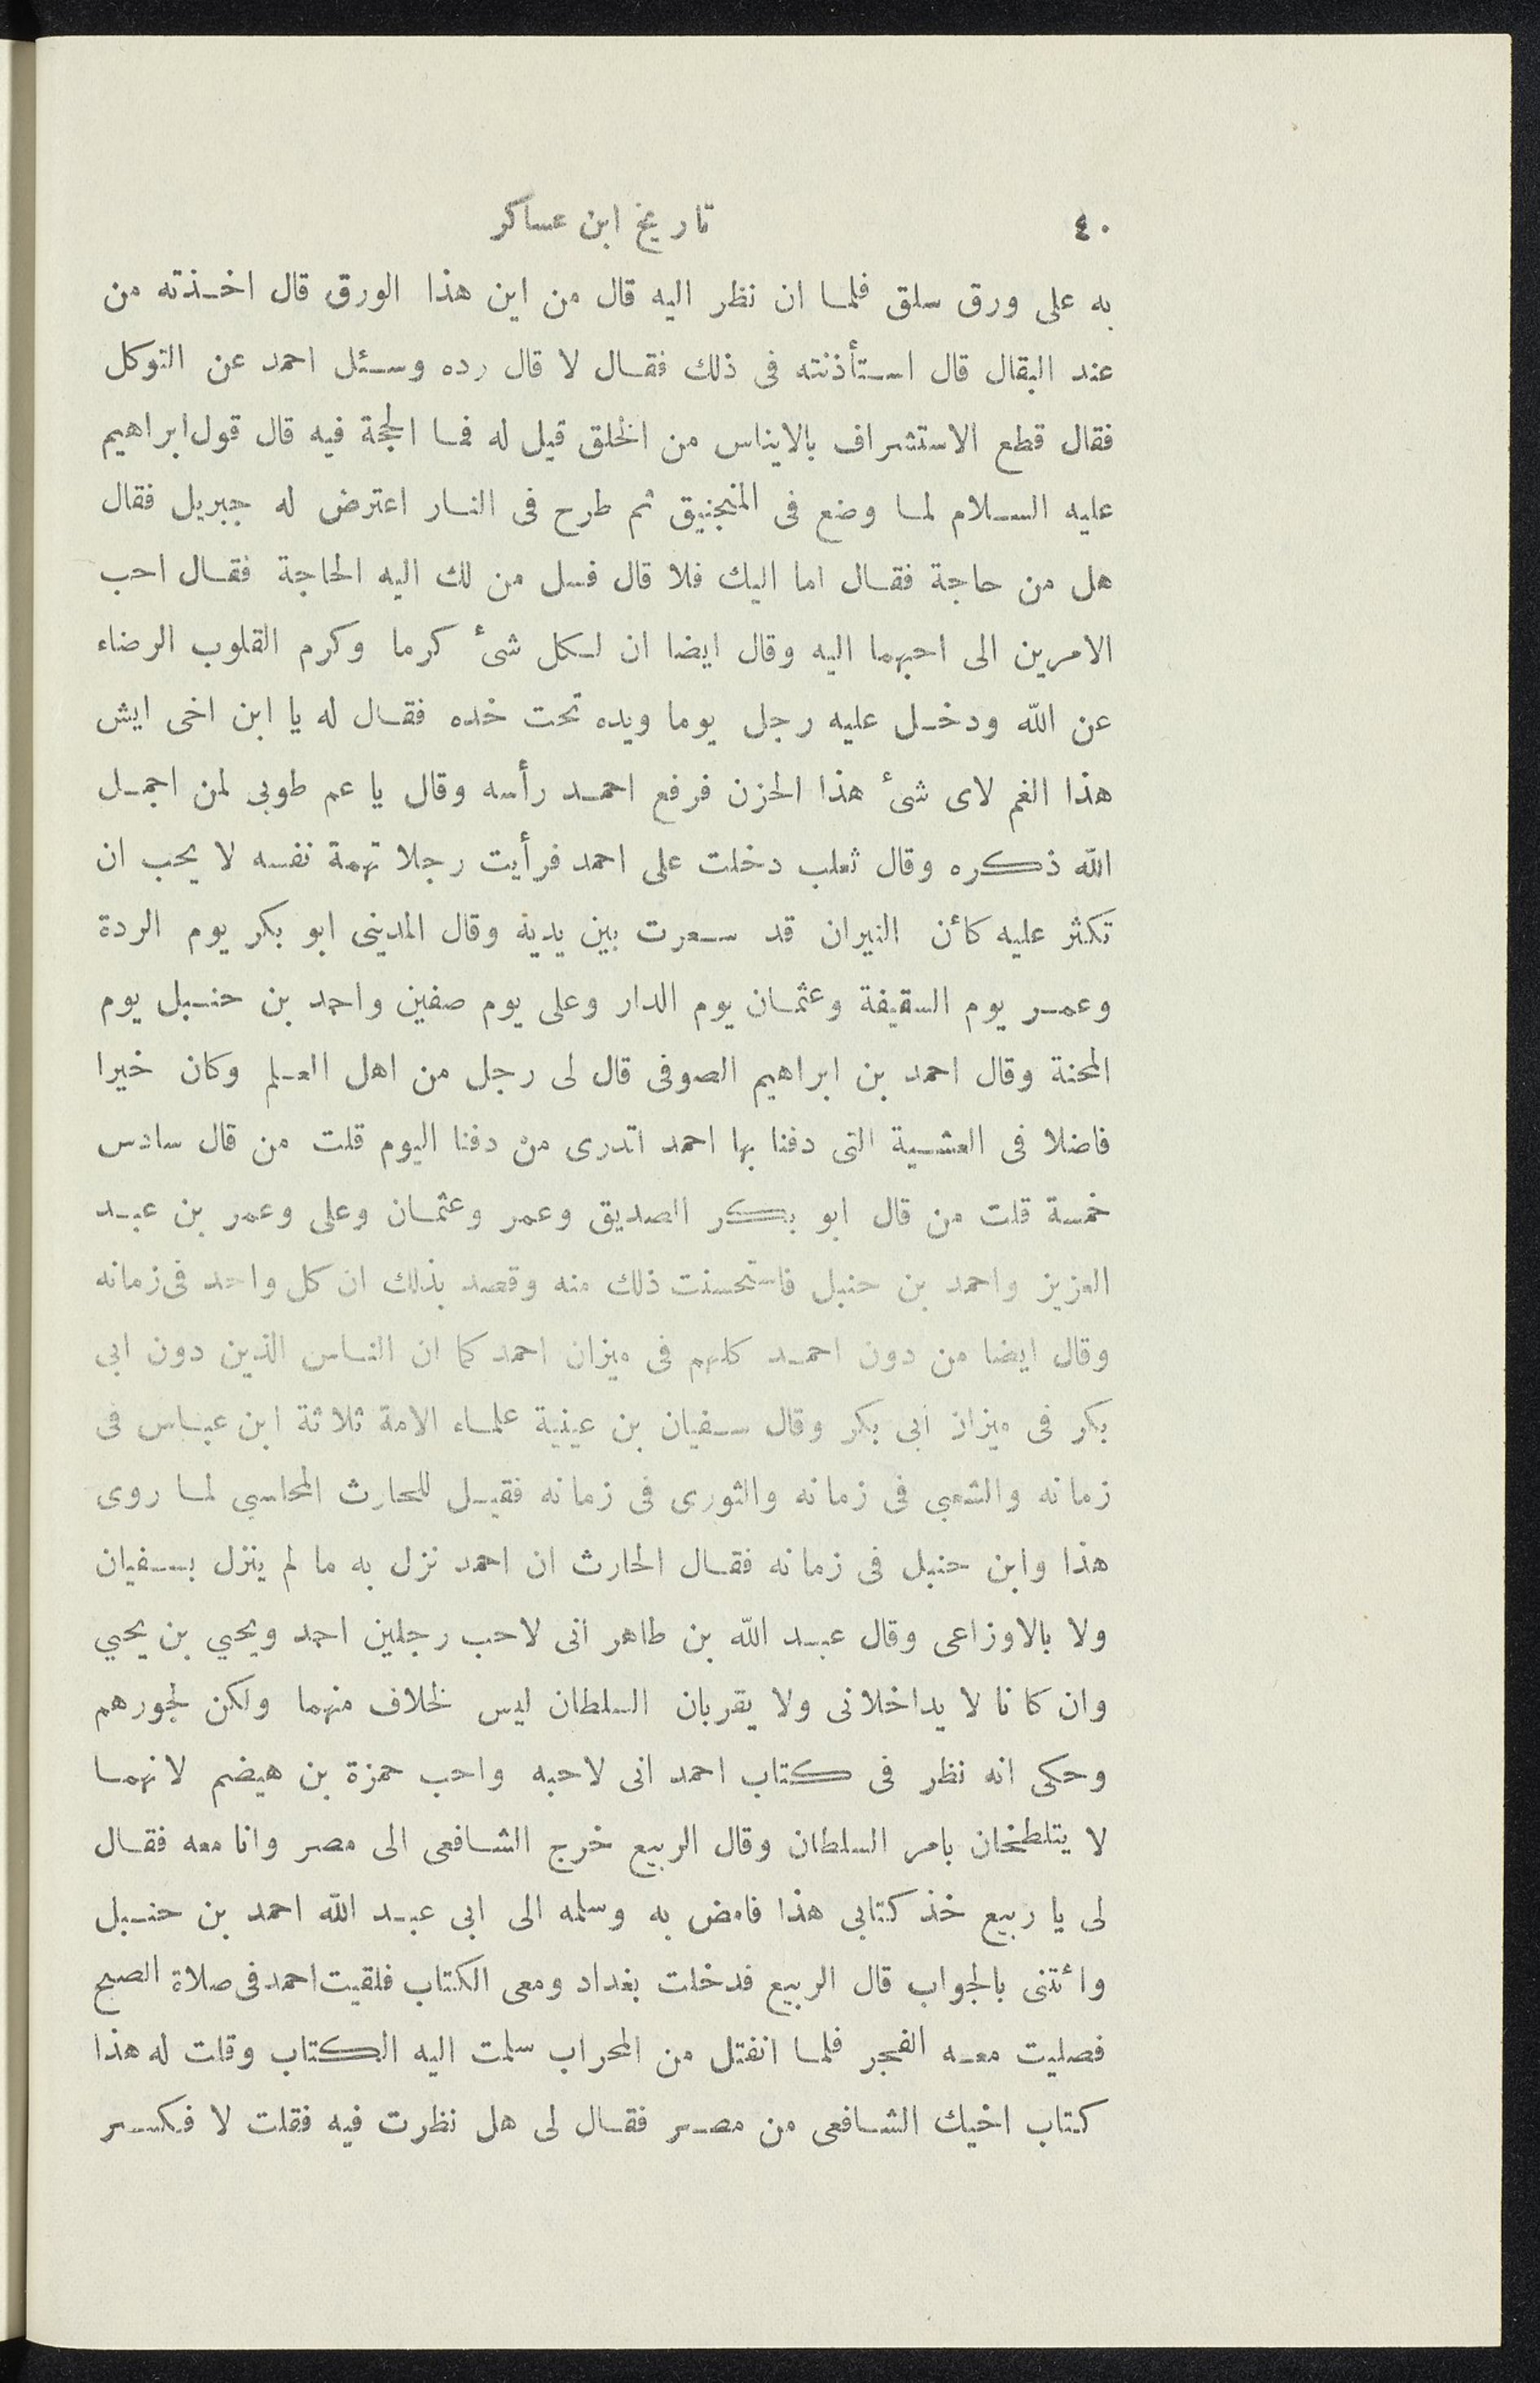 ٤٠ تاريخ ابن عساكر
به على ورق سلق فلما ان نظر اليه قال من اين هذا الورق قال اخذته من
عند البقال قال استأذنته فى ذلك فقال لا قال رده وسئل احمد عن التوكل
فقال قطع الاستشراف بالايناس من الخلق قيل له فما الحجة فيه قال قول ابراهيم
عليه السلام لما وضع فى المنجنيق ثم طرح فى النار اعترض له جبريل فقال
هل من حاجة فقال اما اليك فلا قال فسل من لك اليه الحاجة فقال احب
الامرين الى احبهما اليه وقال ايضا ان لكل شئ كرما وكرم القلوب الرضاء
عن الله ودخل عليه رجل يوما ويده تحت خده فقال له يا ابن اخى ايش
هذا الغم لاى شئ هذا الحزن فرفع احمد رأسه وقال يا عم طوبى لمن اجمل
الله ذكره وقال ثعلب دخلت على احمد فرأيت رجلا تهمة نفسه لا يحب ان
تكثر عليه كأن النيران قد سعرت بين يديه وقال المدينى ابو بكر يوم الردة
وعمر يوم السقيفة وعثمان يوم الدار وعلى يوم صفين واحمد بن حنبل يوم
المحنة وقال احمد بن ابراهيم الصوفى قال لى رجل من اهل العلم وكان خيرا
فاضلا فى العشية التى دفنا بها احمد اتدرى من دفنا اليوم قلت من قال سادس
خمسة قلت من قال ابو بكر الصديق وعمر وعثمان وعلى وعمر بن عبد
العزيز واحمد بن حنبل فاستحسنت ذلك منه وقصد بذلك ان كل واحد فى زمانه
وقال ايضا من دون احمد كلهم فى ميزان احمد كما ان الناس الذين دون ابى
بكر فى ميزان أبى بكر وقال سفيان بن عينية علماء الامة ثلاثة ابن عباس فى
زمانه والشعبى فى زمانه والثورى فى زمانه فقيل للحارث المحاسبى لما روى
هذا وابن حنبل فى زمانه فقال الحارث ان احمد نزل به ما لم ينزل بسفيان
ولا بالاوزاعى وقال عبد الله بن طاهر أنى لاحب رجلين احمد ويحيي بن يحيي
وان كانا لا يداخلانى ولا يقربان السلطان ليس لخلاف منهما ولكن لجورهم
وحكى انه نظر فى كتاب احمد انى لاحبه واحب حمزة بن هيضم لانهما
لا يتلطخان بامر السلطان وقال الربيع خرج الشافعى الى مصر وانا معه فقال
لى يا ربيع خذ كتابى هذا فامض به وسلمه الى ابى عبد الله احمد بن حنبل
وأتنى بالجواب قال الربيع فدخلت بغداد ومعى الكتاب فلقيت احمد فى صلاة الصبح
فصليت معه الفجر فلما انفتل من المحراب سلمت اليه الكتاب وقلت له هذا
كتاب اخيك الشافعى من مصر فقال لى هل نظرت فيه فقلت لا فكسر